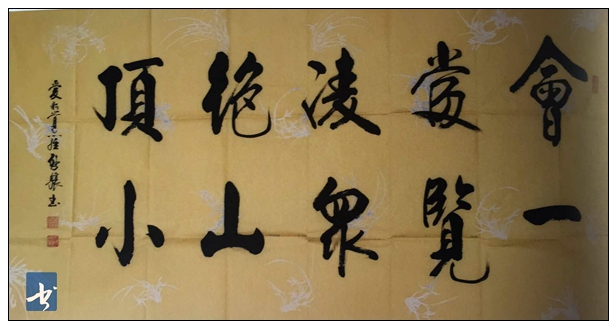 會當凌絕頂
一覽眾山小
书